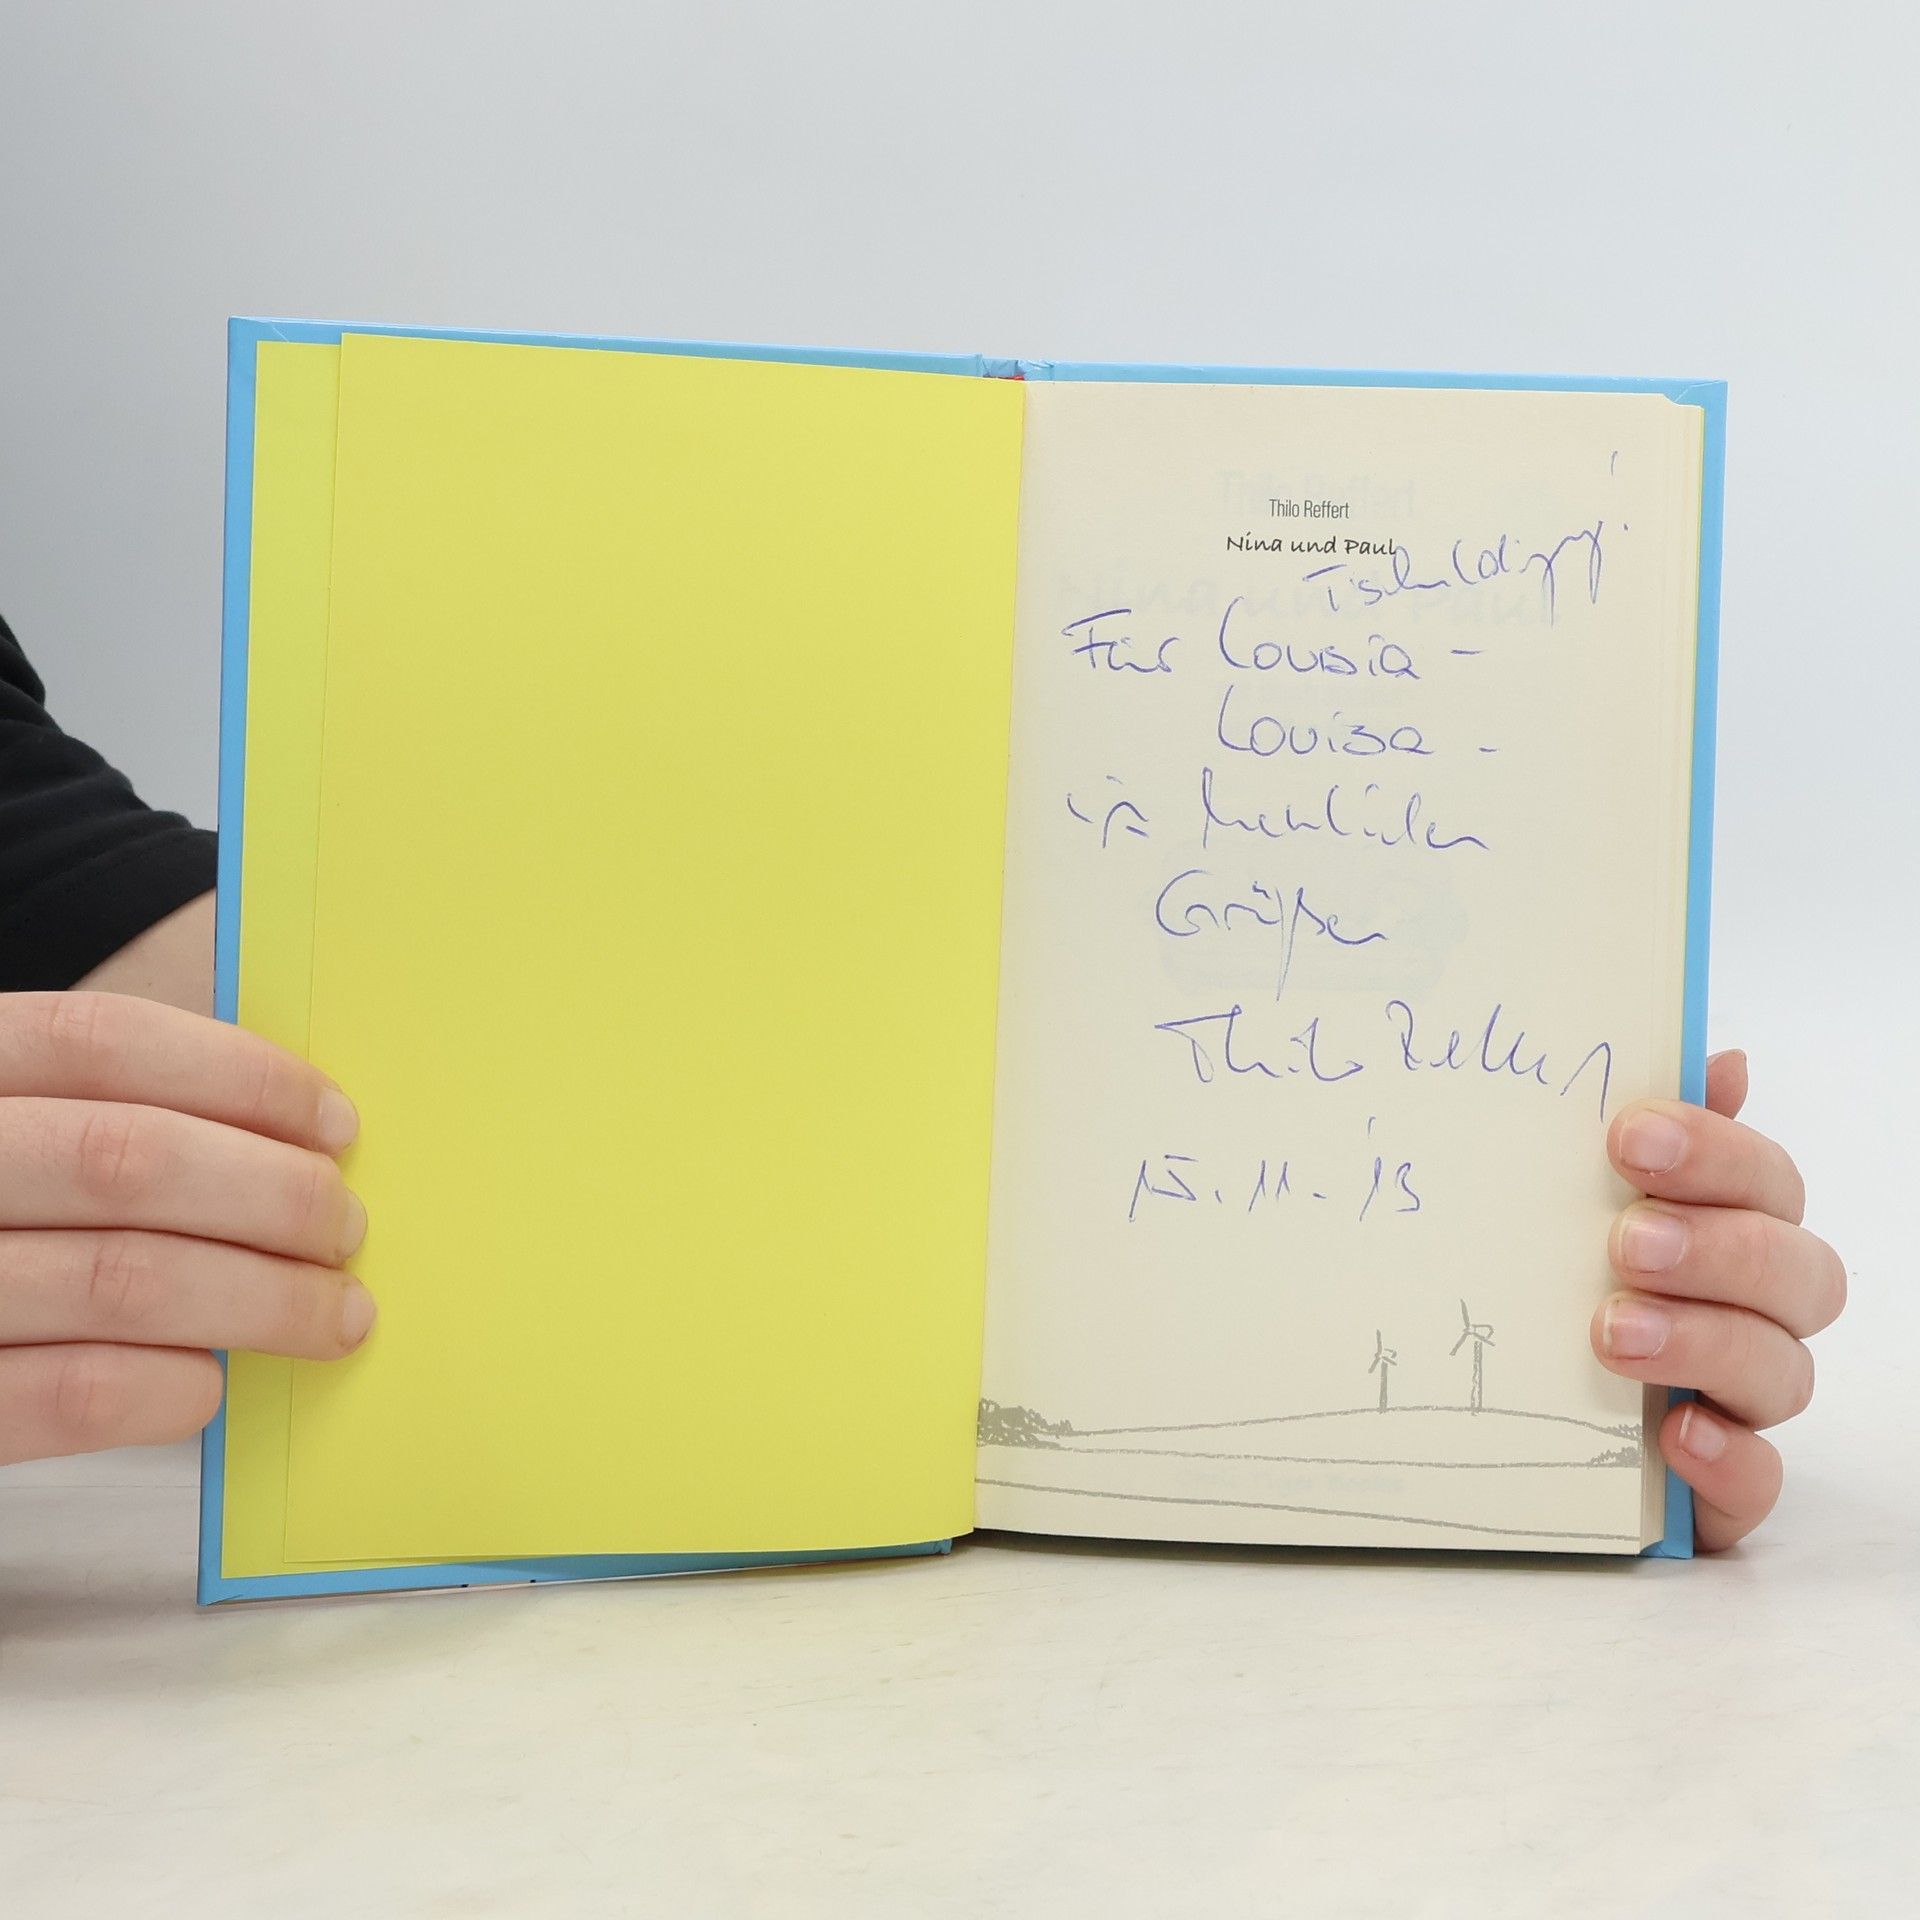 Thilo Reffert
Nina und Paul
Tschuldigung!
Für Lousia -
Louisa -
mit herzlichen
Grüßen
Thilo Reffert
15.11.'13